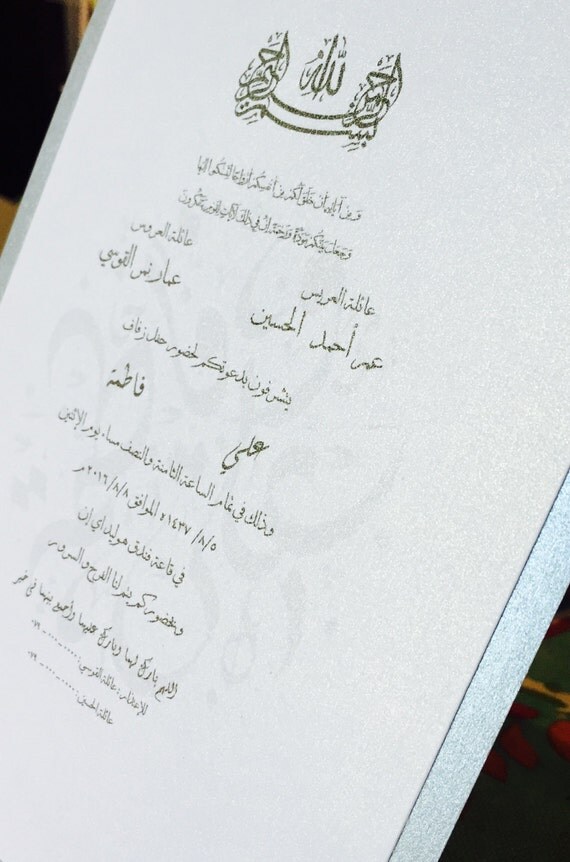 بسم الله الرحمن الرحيم
ومن آياته أن خلق لكم من أنفسكم أزواجا لتسكنوا إليها
وجعل بينكم مودة ورحمة إن في ذلك لآيات لقوم يتفكرون
عائلة العريس
عائلة العروس
عمر أحمد الحسين
عمار نس القوسي
يتشرفون بدعوتكم لحضور حفل زفاف
علي
فاطمة
وذلك في تمام الساعة الثامنة والنصف مساء يوم الإثنين
٨/٥/ ١٤٣٧ه الموافق ٢٠١٦/٨/٨ م
في قاعة فندق هوليداي إن
وبحضوركم يتم لنا الفرح والسرور
اللهم بارك لهما وبارك عليهما وأجمع بينهما في خير
للإعتذار: عائلة القوسي: ٠٧٩٠٠٠٠٠٠٠
عائلة الحسين: ٠٧٩٠٠٠٠٠٠٠